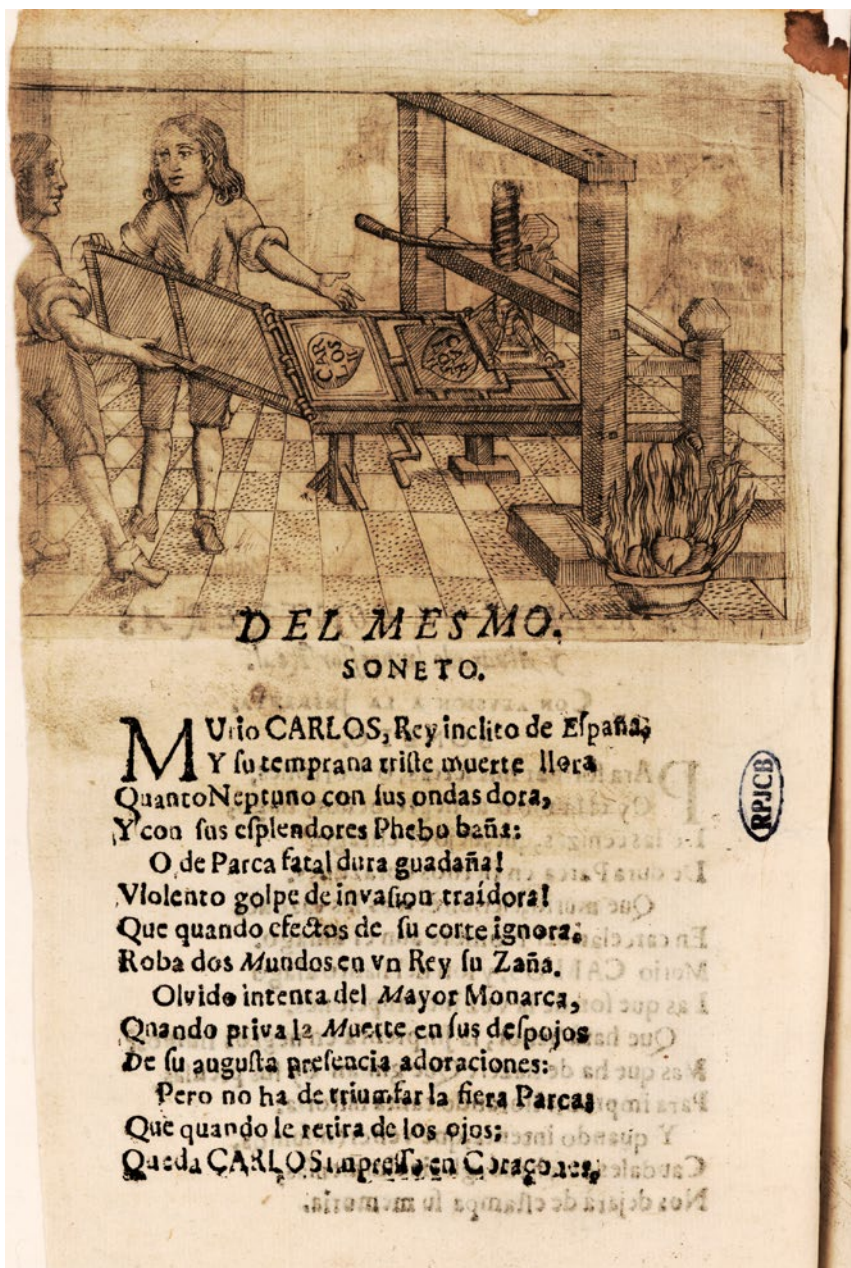 CAR
LOS
II
DEL MESMO.
SONETO.
MUrio CARLOS, Rey inclito de Eſpaña;
Y ſu temprana triſte muerte llora
QuantoNeptuno con ſus ondas dora,
Y con ſus eſplendores Phebo baña:
O de Parca fatal dura guadaña!
Violento golpe de invaſion traídora!
Que quando efectos de ſu corte ignora,
Roba dos Mundos en vn Rey ſu Zaña.
Olvido intenta del Mayor Monarca,
Quando priva la Muerte en ſus deſpojos
De ſu auguſta preſencia adoraciones:
Pero no ha de triumfar la fiera Parca;
Que quando le retira de los ojos;
Queda CARLOS impreſſo en Coraçones.
RPJCB